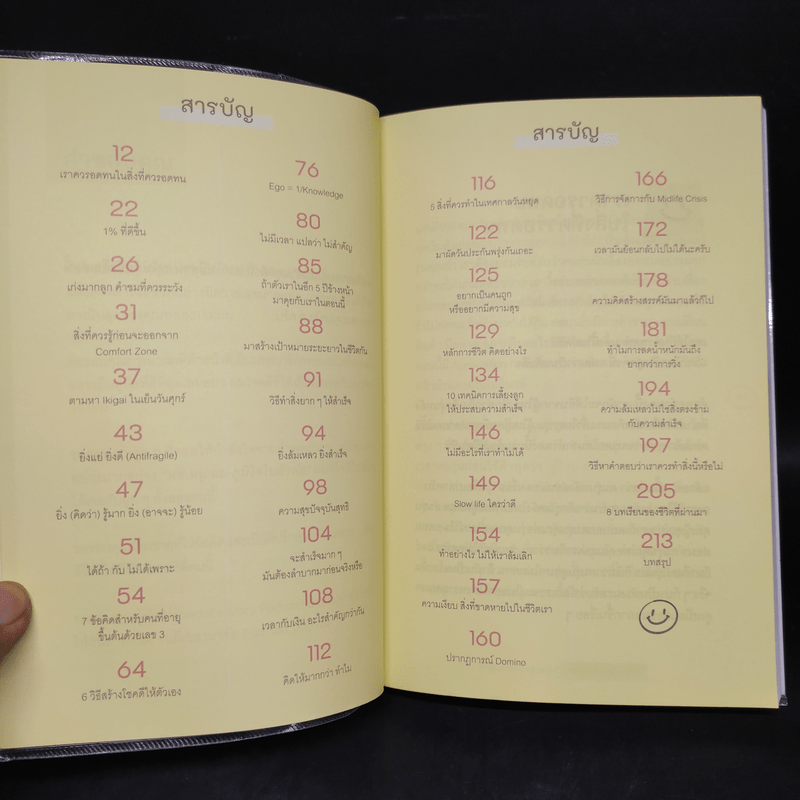 สารบัญ
12
เราควรอดทนในสิ่งที่ควรอดทน
22
1% ที่ดีขึ้น
26
เก่งมากลูก คำชมที่ควรระวัง
31
สิ่งที่ควรรู้ก่อนจะออกจาก
Comfort Zone
37
ตามหา Ikigai ในเย็นวันศุกร์
43
ยิ่งแย่ ยิ่งดี (Antifragile)
47
ยิ่ง (คิดว่า) รู้มาก ยิ่ง (อาจจะ) รู้น้อย
51
ได้ถ้า กับ ไม่ได้เพราะ
54
7 ข้อคิดสำหรับคนที่อายุ
ขึ้นต้นด้วยเลข 3
64
6 วิธีสร้างโชคดีให้ตัวเอง
76
Ego = 1/Knowledge
80
ไม่มีเวลา แปลว่า ไม่สำคัญ
85
ถ้าตัวเราในอีก 5 ปีข้างหน้า
มาคุยกับเราในตอนนี้
88
มาสร้างเป้าหมายระยะยาวในชีวิตกัน
91
วิธีทำสิ่งยาก ๆ ให้สำเร็จ
94
ยิ่งล้มเหลว ยิ่งสำเร็จ
98
ความสุขปัจจุบันสุทธิ
104
จะสำเร็จมาก ๆ
มันต้องลำบากมาก่อนจริงหรือ
108
เวลากับเงิน อะไรสำคัญกว่ากัน
112
คิดให้มากกว่า ทำไม
สารบัญ
116
5 สิ่งที่ควรทำในเทศกาลวันหยุด
122
มาผัดวันประกันพรุ่งกันเถอะ
125
อยากเป็นคนถูก
หรืออยากมีความสุข
129
หลักการชีวิต คิดอย่างไร
134
10 เทคนิคการเลี้ยงลูก
ให้ประสบความสำเร็จ
146
ไม่มีอะไรที่เราทำไม่ได้
149
Slow life ใครว่าดี
154
ทำอย่างไร ไม่ให้เราล้มเลิก
157
ความเงียบ สิ่งที่ขาดหายไปในชีวิตเรา
160
ปรากฏการณ์ Domino
166
วิธีการจัดการกับ Midlife Crisis
172
เวลามันย้อนกลับไปไม่ได้นะครับ
178
ความคิดสร้างสรรค์มันมาแล้วก็ไป
181
ทำไมการลดน้ำหนักมันถึง
ยากกว่าการวิ่ง
194
ความล้มเหลวไม่ใช่สิ่งตรงข้าม
กับความสำเร็จ
197
วิธีหาคำตอบว่าเราควรทำสิ่งนี้หรือไม่
205
8 บทเรียนของชีวิตที่ผ่านมา
213
บทสรุป